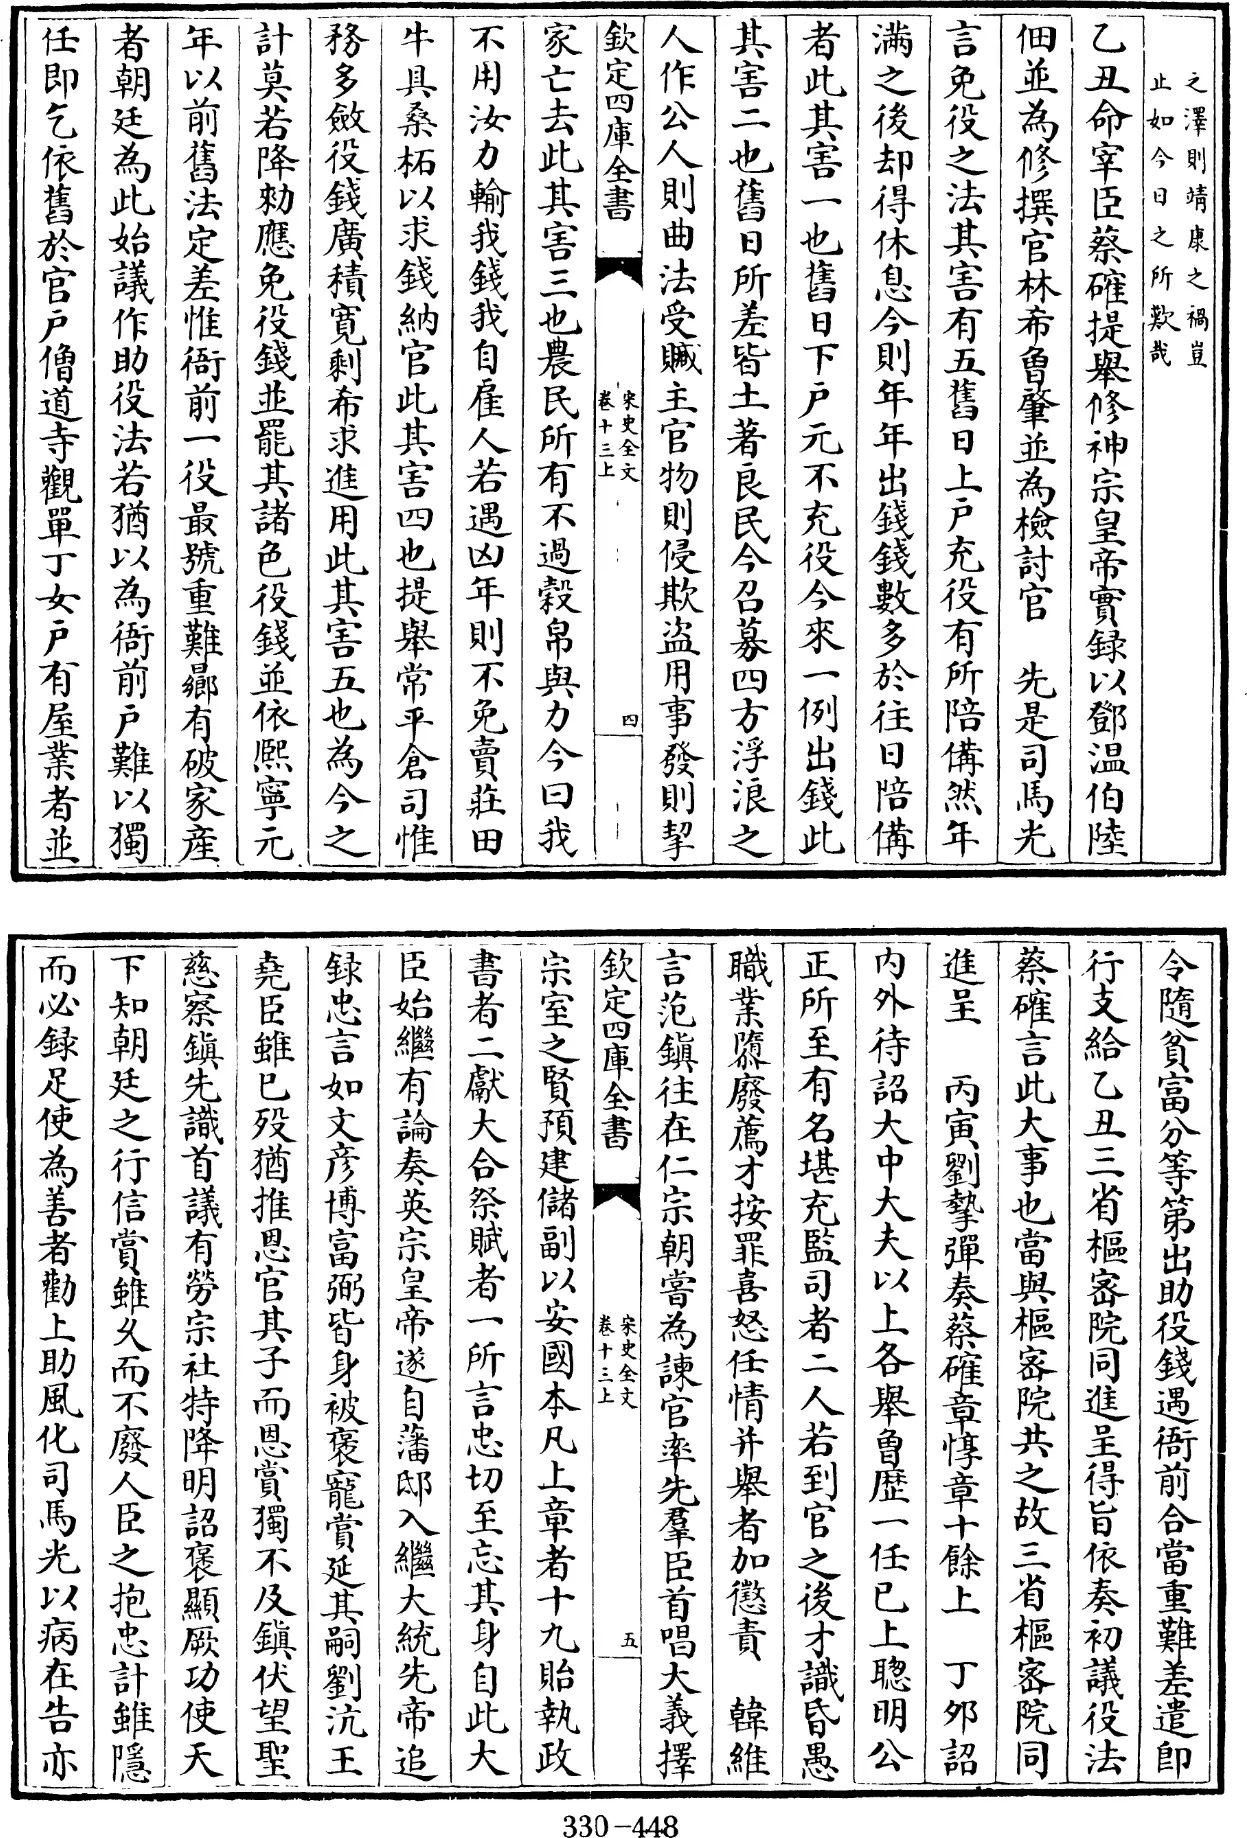 之澤則靖康之禍豈
止如今日之所歎哉
乙丑命宰臣蔡確提舉修神宗皇帝實録以鄧温伯陸
佃並為修撰官林希魯肇並為檢討官　先是司馬光
言免役之法其害有五舊日上戸充役有所陪備然年
滿之後却得休息今則年年出錢錢數多於往日陪備
者此其害一也舊日下戸元不充役今來一例出錢此
其害二也舊日所差皆土著良民今召募四方浮浪之
人作公人則曲法受贓主官物則侵欺盜用事發則挈
欽定四庫全書
宋史全文
卷十三上
四
家亡去此其害三也農民所有不過穀帛與力今曰我
不用汝力輸我錢我自雇人若遇凶年則不免賣莊田
牛具桑柘以求錢納官此其害四也提舉常平倉司惟
務多斂役錢廣積寛剩希求進用此其害五也為今之
計莫若降勑應免役錢並罷其諸色役錢並依熙寧元
年以前舊法定差惟衙前一役最號重難曏有破家産
者朝廷為此始議作助役法若猶以為衙前戸難以獨
任即乞依舊於官戸僧道寺觀單丁女戸有屋業者並
令隨貧富分等第出助役錢遇衙前合當重難差遣即
行支給乙丑三省樞密院同進呈得旨依奏初議役法
蔡確言此大事也當與樞密院共之故三省樞密院同
進呈　丙寅劉摯彈奏蔡確章惇章十餘上　丁夘詔
内外待詔大中大夫以上各舉魯歴一任已上聰明公
正所至有名堪充監司者二人若到官之後才識昏愚
職業隳廢薦才按罪喜怒任情并舉者加懲責　韓維
言范鎮往在仁宗朝嘗為諫官率先羣臣首唱大義擇
欽定四庫全書
宋史全文
卷十三上
五
宗室之賢預建儲副以安國本凡上章者十九貽執政
書者二獻大合祭賦者一所言忠切至忘其身自此大
臣始繼有論奏英宗皇帝遂自藩邸入繼大統先帝追
録忠言如文彦博富弼皆身被褒寵賞延其嗣劉沆王
堯臣雖已歿猶推恩官其子而恩賞獨不及鎮伏望聖
慈察鎮先識首議有勞宗社特降明詔褒顯厥功使天
下知朝廷之行信賞雖久而不廢人臣之抱忠計雖隱
而必録足使為善者勸上助風化司馬光以病在告亦
330-448